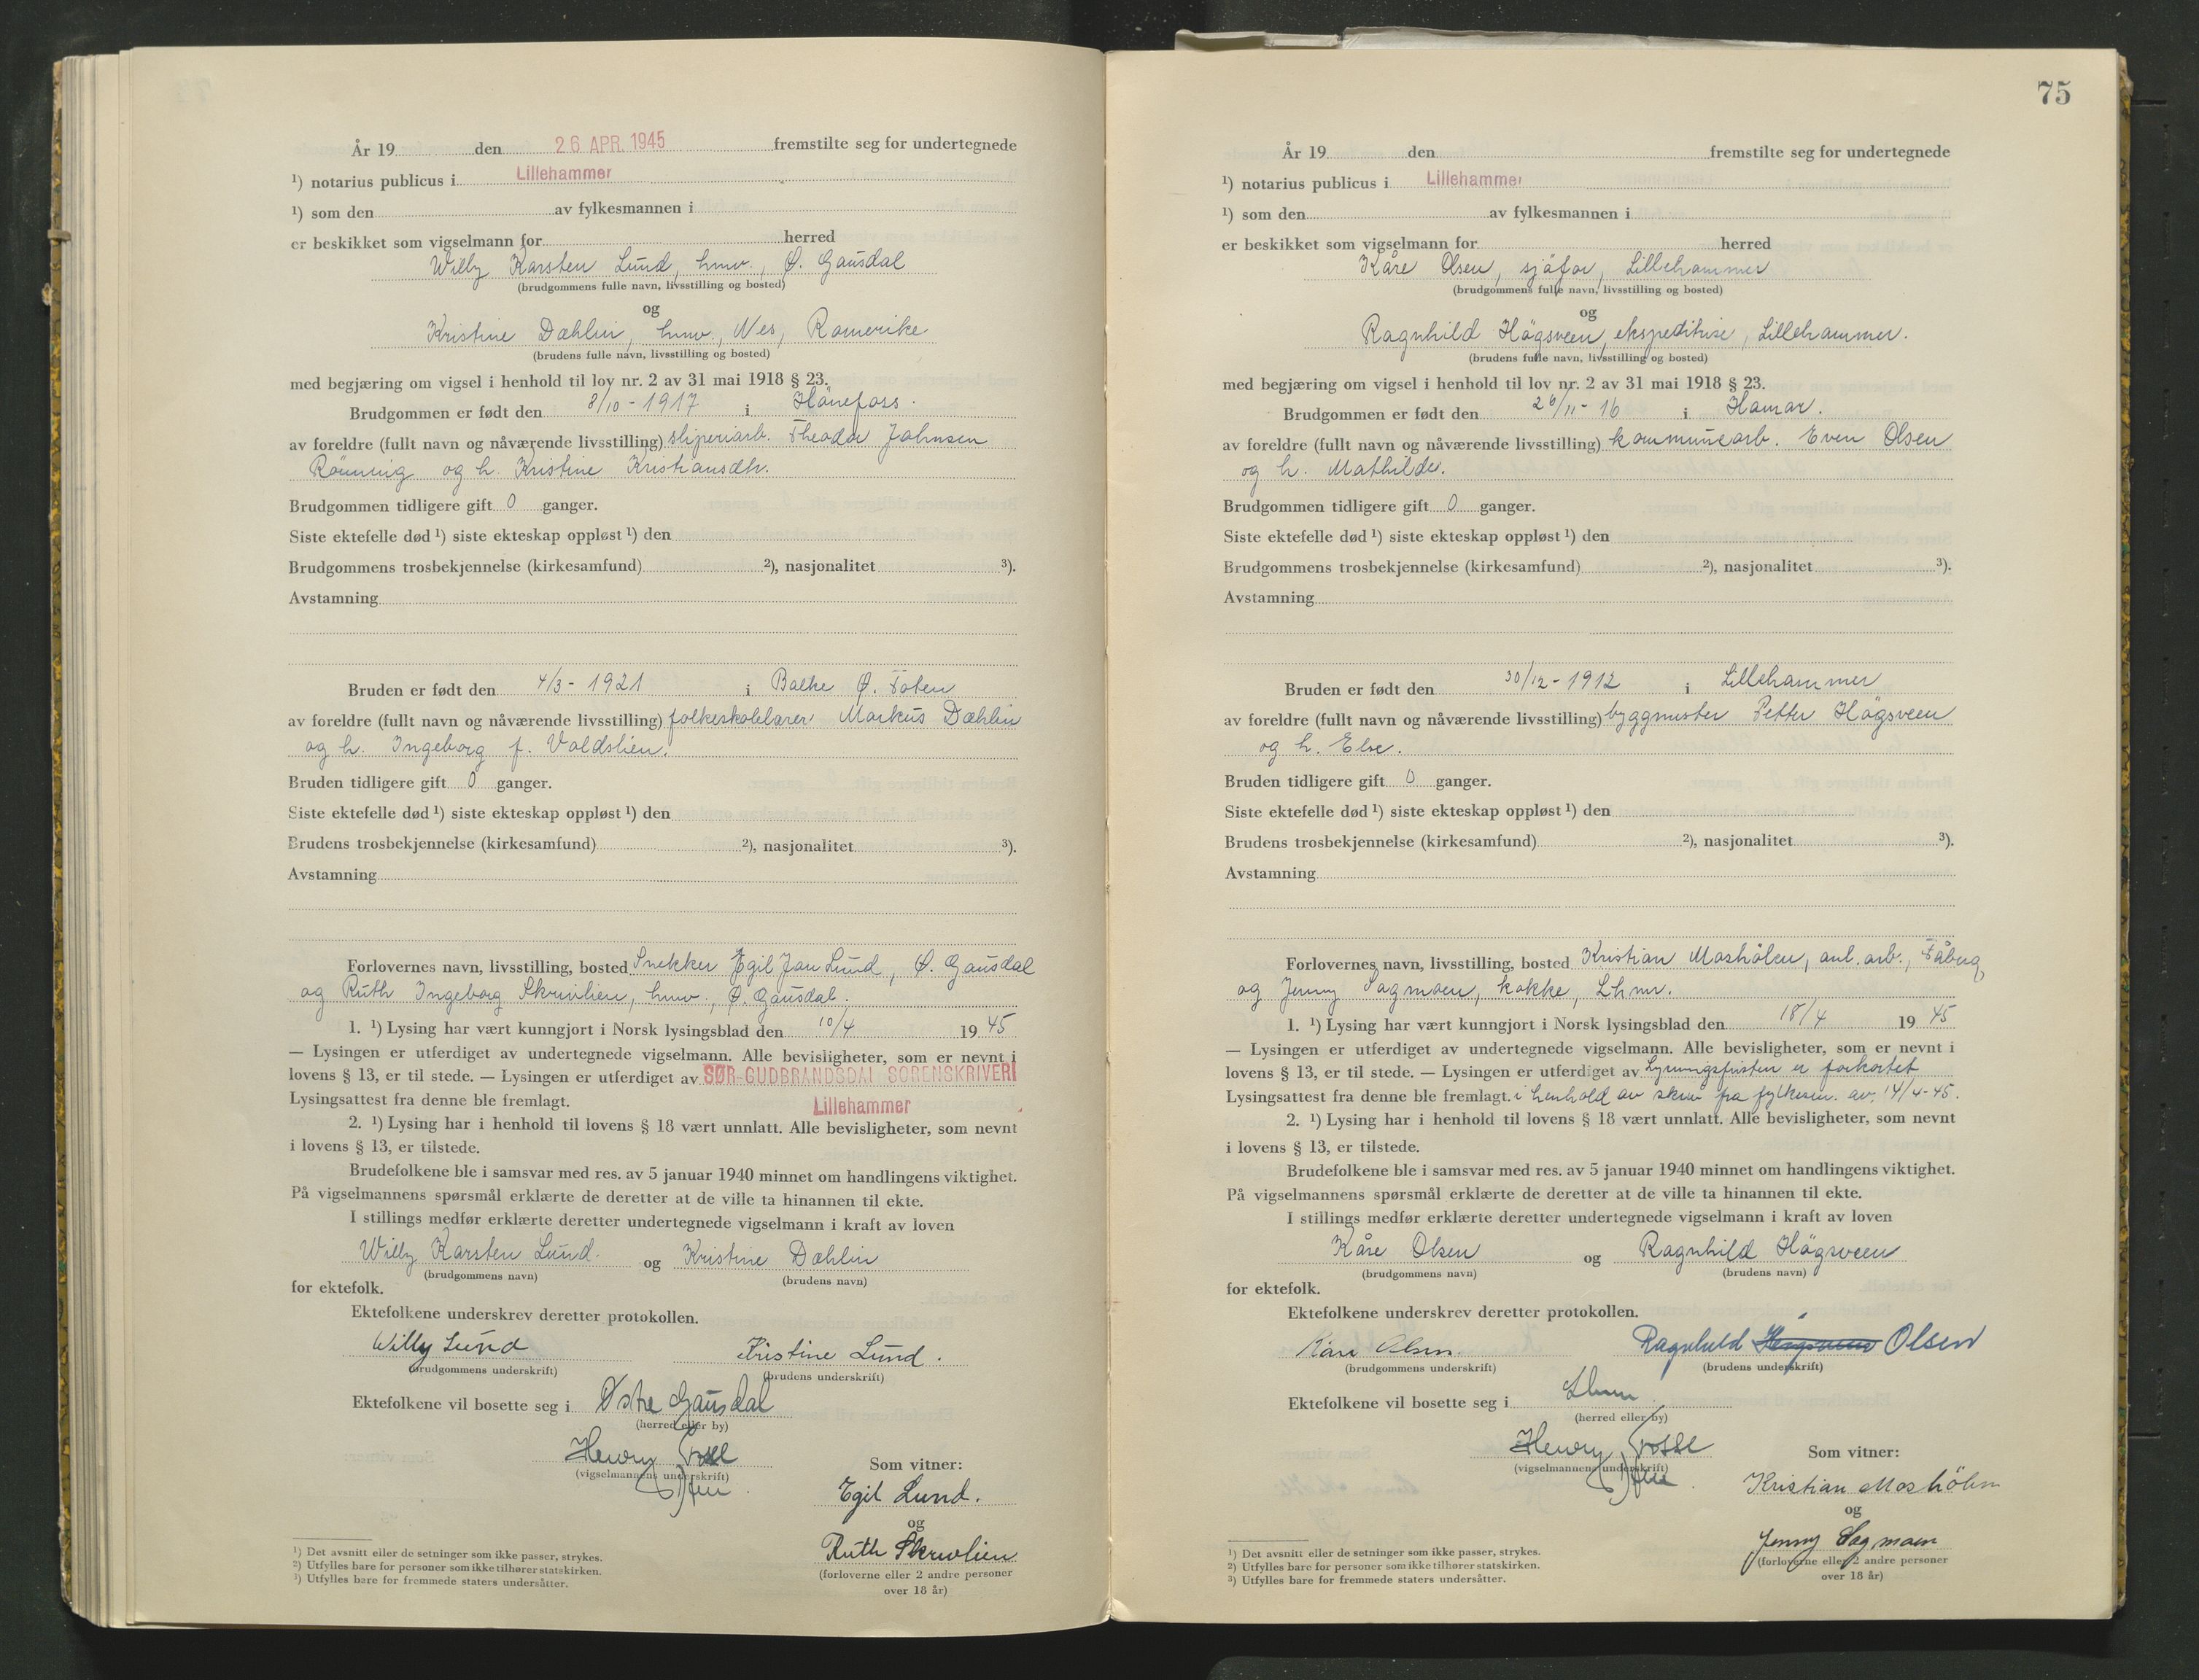 År 19 den 26 APR. 1945 fremstilte seg for undertegnede
¹) notarius publicus i Lillehammer
¹) som den av fylkesmannen i
er beskikket som vigselmann for herred
Willy Karsten Lund, hmv., Ø. Gausdal
(brudgommens fulle navn, livsstilling og bosted)
og
Kristine Dæhlin, hmv., Nes, Romerike
(brudens fulle navn, livsstilling og bosted)
med begjæring om vigsel i henhold til lov nr. 2 av 31 mai 1918 § 23.
Brudgommen er født den 8/10 - 1917 i Hönefoss.
av foreldre (fullt navn og nåværende livsstilling) sliperiarb. Theodor Johnsen
Rönning og h. Kristine Kristiansdtr.
Brudgommen tidligere gift 0 ganger.
Siste ektefelle død ¹) siste ekteskap oppløst ¹) den
Brudgommens trosbekjennelse (kirkesamfund) ²), nasjonalitet ³).
Avstamning
Bruden er født den 4/3 - 1921 i Balke Ø. Toten
av foreldre (fullt navn og nåværende livsstilling) folkeskolelærer Markus Dæhlin
og h. Ingeborg f. Voldslien.
Bruden tidligere gift 0 ganger.
Siste ektefelle død ¹) siste ekteskap oppløst ¹) den
Brudens trosbekjennelse (kirkesamfund) ²), nasjonalitet ³).
Avstamning
Forlovernes navn, livsstilling, bosted Snekker Egil Jan Lund, Ø. Gausdal
og Ruth Ingeborg Skruvlien, hmv., Ø. Gausdal.
1. ¹) Lysing har vært kunngjort i Norsk lysingsblad den 10/4 19 45
— Lysingen er utferdiget av undertegnede vigselmann. Alle bevisligheter, som er nevnt i
lovens § 13, er til stede. — Lysingen er utferdiget av SØR-GUDBRANDSDAL SORENSKRIVERI
Lysingsattest fra denne ble fremlagt. Lillehammer
2. ¹) Lysing har i henhold til lovens § 18 vært unnlatt. Alle bevisligheter, som nevnt
i lovens § 13, er tilstede.
Brudefolkene ble i samsvar med res. av 5 januar 1940 minnet om handlingens viktighet.
På vigselmannens spørsmål erklærte de deretter at de ville ta hinannen til ekte.
I stillings medfør erklærte deretter undertegnede vigselmann i kraft av loven
Willy Karsten Lund og Kristine Dæhlin
(brudgommens navn) (brudens navn)
for ektefolk.
Ektefolkene underskrev deretter protokollen.
Willy Lund Kristine Lund.
(brudgommens underskrift) (brudens underskrift)
Ektefolkene vil bosette seg i Østre Gausdal
(herred eller by)
Henry
(vigselmannens underskrift)
Som vitner:
Egil Lund.
og
Ruth Skruvlien
(forloverne eller 2 andre personer
over 18 år)
¹) Det avsnitt eller de setninger som ikke passer, strykes.
²) Utfylles bare for personer som ikke tilhører statskirken.
³) Utfylles bare for fremmede staters undersåtter.
75
År 19 den fremstilte seg for undertegnede
¹) notarius publicus i Lillehammer
¹) som den av fylkesmannen i
er beskikket som vigselmann for herred
Kåre Olsen, sjåfør, Lillehammer
(brudgommens fulle navn, livsstilling og bosted)
og
Ragnhild Högsveen, ekspeditrise, Lillehammer.
(brudens fulle navn, livsstilling og bosted)
med begjæring om vigsel i henhold til lov nr. 2 av 31 mai 1918 § 23.
Brudgommen er født den 26/11 - 16 i Hamar.
av foreldre (fullt navn og nåværende livsstilling) kommunearb. Even Olsen
og h. Mathilde.
Brudgommen tidligere gift 0 ganger.
Siste ektefelle død ¹) siste ekteskap oppløst ¹) den
Brudgommens trosbekjennelse (kirkesamfund) ²), nasjonalitet ³).
Avstamning
Bruden er født den 30/12 - 1912 i Lillehammer
av foreldre (fullt navn og nåværende livsstilling) byggmester Petter Högsveen
og h. Else.
Bruden tidligere gift 0 ganger.
Siste ektefelle død ¹) siste ekteskap oppløst ¹) den
Brudens trosbekjennelse (kirkesamfund) ²), nasjonalitet ³).
Avstamning
Forlovernes navn, livsstilling, bosted Kristian Moshölen, anl. arb., Fåberg,
og Jenny Sagmoen, kokke, Lhmr.
1. ¹) Lysing har vært kunngjort i Norsk lysingsblad den 18/4 19 45
— Lysingen er utferdiget av undertegnede vigselmann. Alle bevisligheter, som er nevnt i
lovens § 13, er til stede. — Lysingen er utferdiget av Lysningsfristen er forkortet
Lysingsattest fra denne ble fremlagt. i henhold av skriv fra fylkesm. av 14/4-45.
2. ¹) Lysing har i henhold til lovens § 18 vært unnlatt. Alle bevisligheter, som nevnt
i lovens § 13, er tilstede.
Brudefolkene ble i samsvar med res. av 5 januar 1940 minnet om handlingens viktighet.
På vigselmannens spørsmål erklærte de deretter at de ville ta hinannen til ekte.
I stillings medfør erklærte deretter undertegnede vigselmann i kraft av loven
Kåre Olsen og Ragnhild Högsveen
(brudgommens navn) (brudens navn)
for ektefolk.
Ektefolkene underskrev deretter protokollen.
Kåre Olsen. Ragnhild Olsen
(brudgommens underskrift) (brudens underskrift)
Ektefolkene vil bosette seg i Lhmr
(herred eller by)
Henry
(vigselmannens underskrift)
Som vitner:
Kristian Moshölen
og
Jenny Sagmoen
(forloverne eller 2 andre personer
over 18 år)
¹) Det avsnitt eller de setninger som ikke passer, strykes.
²) Utfylles bare for personer som ikke tilhører statskirken.
³) Utfylles bare for fremmede staters undersåtter.